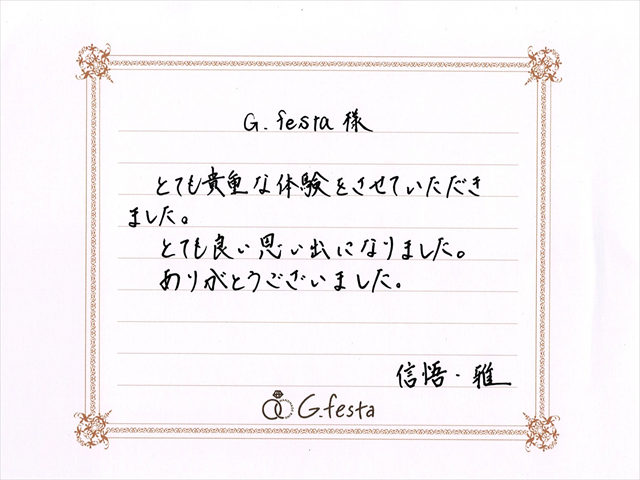 G.festa 様
とても貴重な体験をさせていただき
ました。
とても良い思い出になりました。
ありがとうございました。
信悟・雅
G.festa